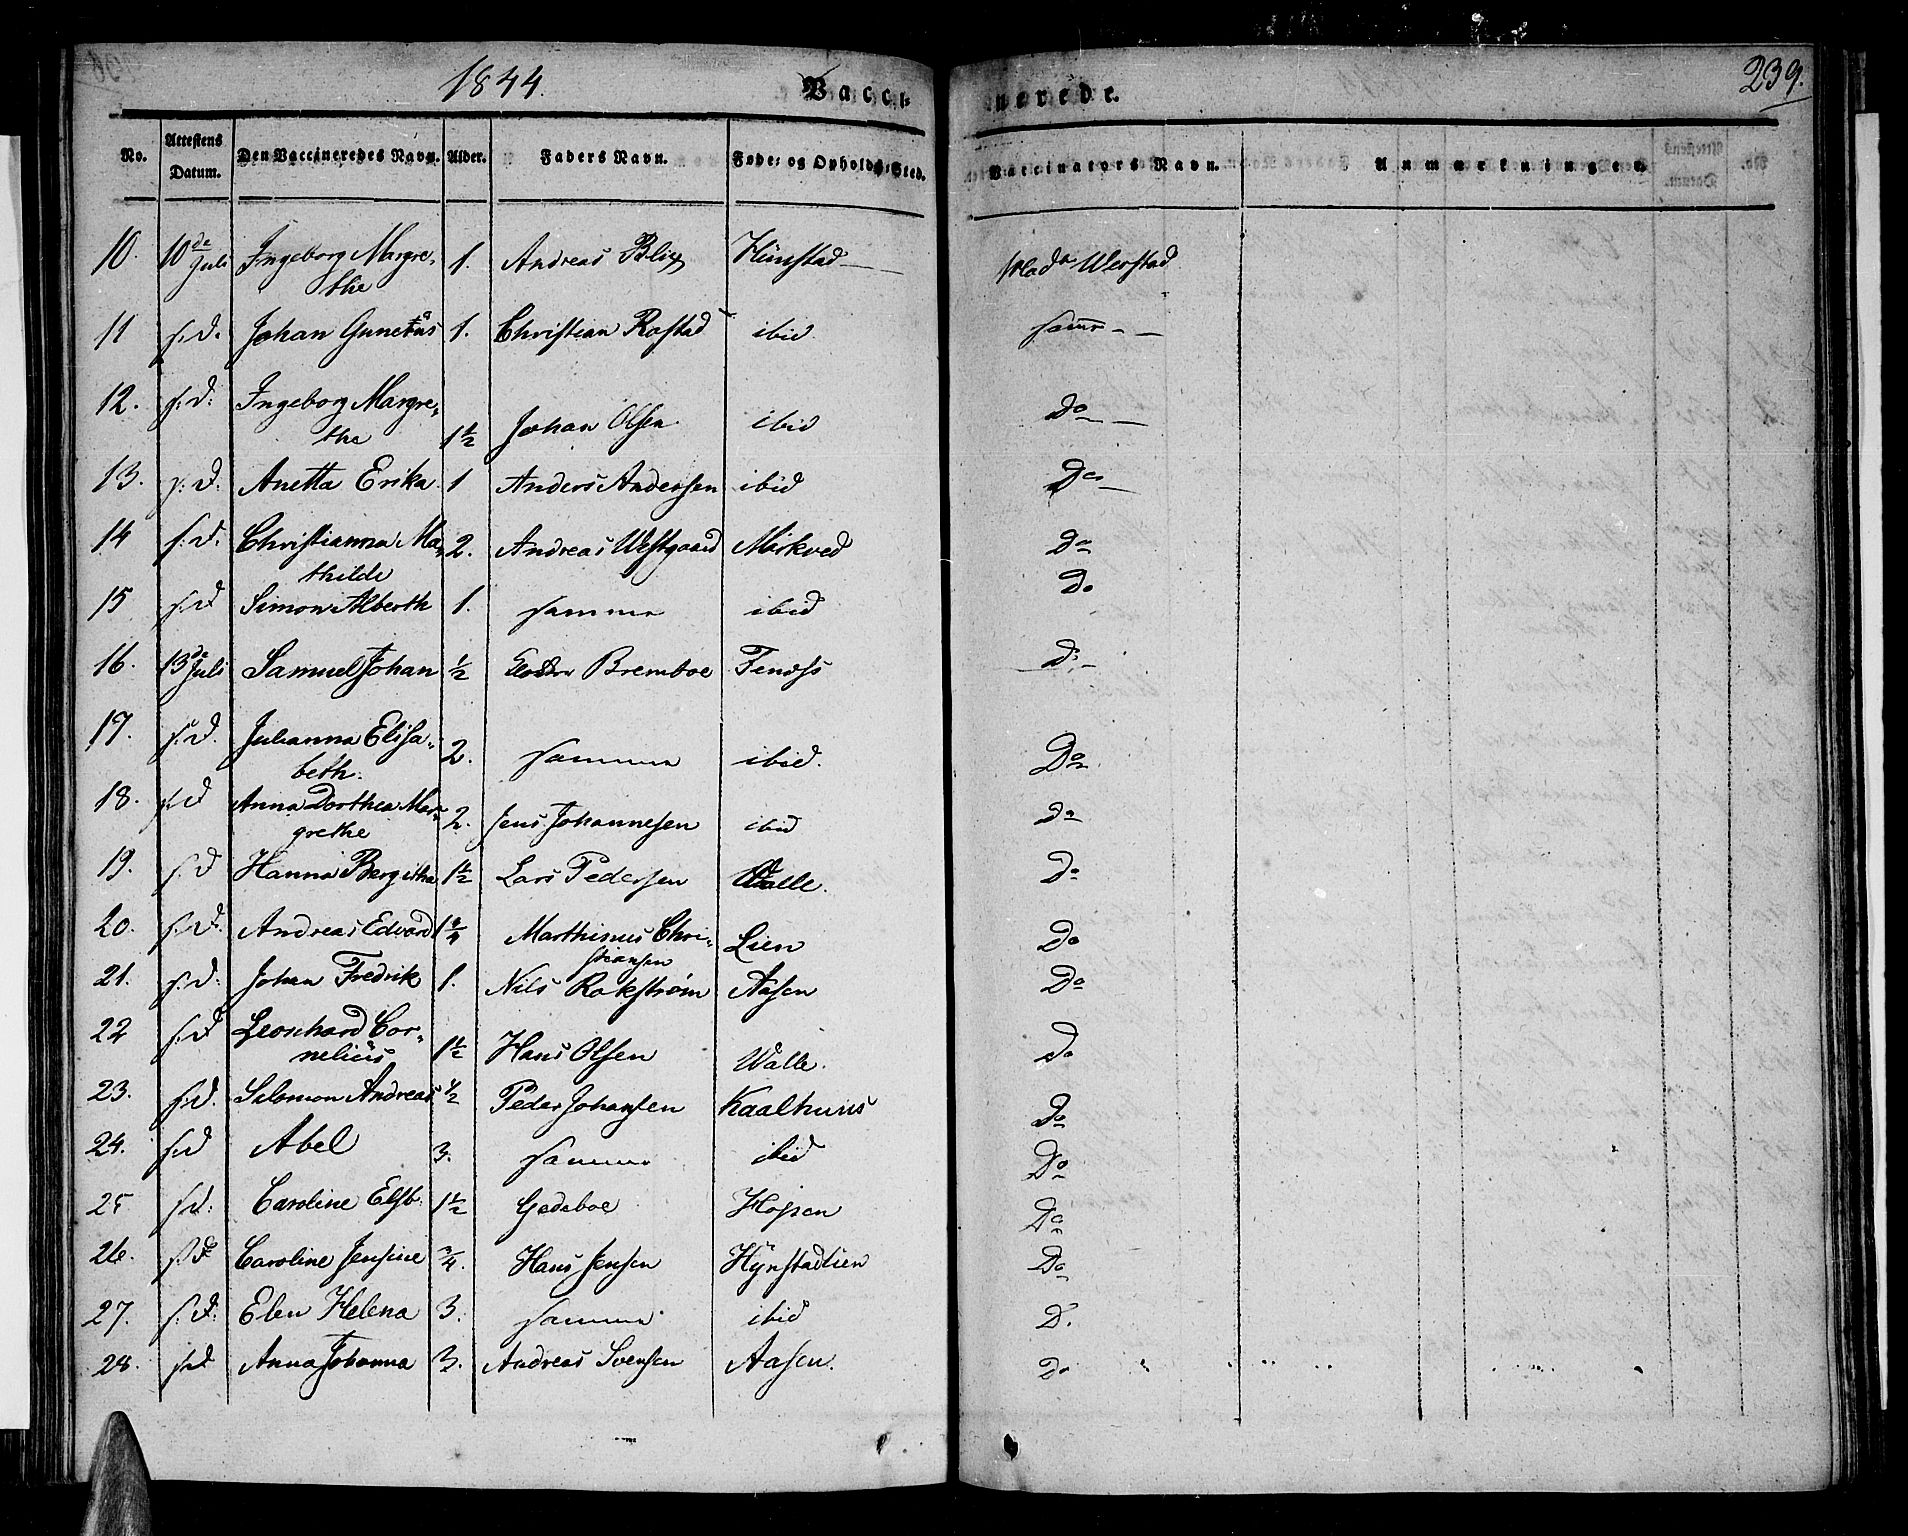 1844. Vacci- nerede. 239.
No. Attestens Datum. Den Vaccineredes Navn. Alder. Faders Navn. Føde- og Opholds-Sted. Vaccinators Navn. Anmærkninger.
10. 10de Juli Ingeborg Margre- 1. Andreas Blix Hunstad Werstad
the
11 s.d. Johan 1. Christian Rostad ibid samme
12. s:d: Ingeborg Margre- Johan Olsen ibid Do
the 1½
13. s:d. Anetta Erika 1 Anders Andersen ibid Do
14 s:d. Christianna Ma- 2. Andreas Westgaard Mörkved Do
thilde
15 s:d Simon Alberth 1. samme ibid Do
16. 13de Juli Samuel Johan ½ Bremboe D:
17. s:d. Julianna Elisa- 2. samme ibid. Do
beth.
18. s:d Anna Dorthea Mar- 2. Jens Johannesen ibid Do
grethe
19. s:d Hanna Bergitha 1½ Lars Pedersen Walle. Do
20. s:d: Andreas Edvard 1¾ Marthinus Chri- Lien Do
stiansen
21. s:d: Johan Fredrik 1. Nils Rokstrøm Aasen Do
22 s:d Leonhard Cor- Hans Olsen Walle. Do
nelius 1½
23. s:d. Salomon Andreas ½ Peder Johansen Kaalhuus Do
24. s:d Abel 3. samme ibid Do
25 s:d: Caroline Elsb. 1½ Gedeboe Hopen Do
26. s:d: Caroline Jensine ¾. Hans Jensen Hynstadlien Do
27. s:d: Elen Helena 3. samme ibid D.
28. s:d Anna Johanna 3. Andreas Svensen Aasen. Do